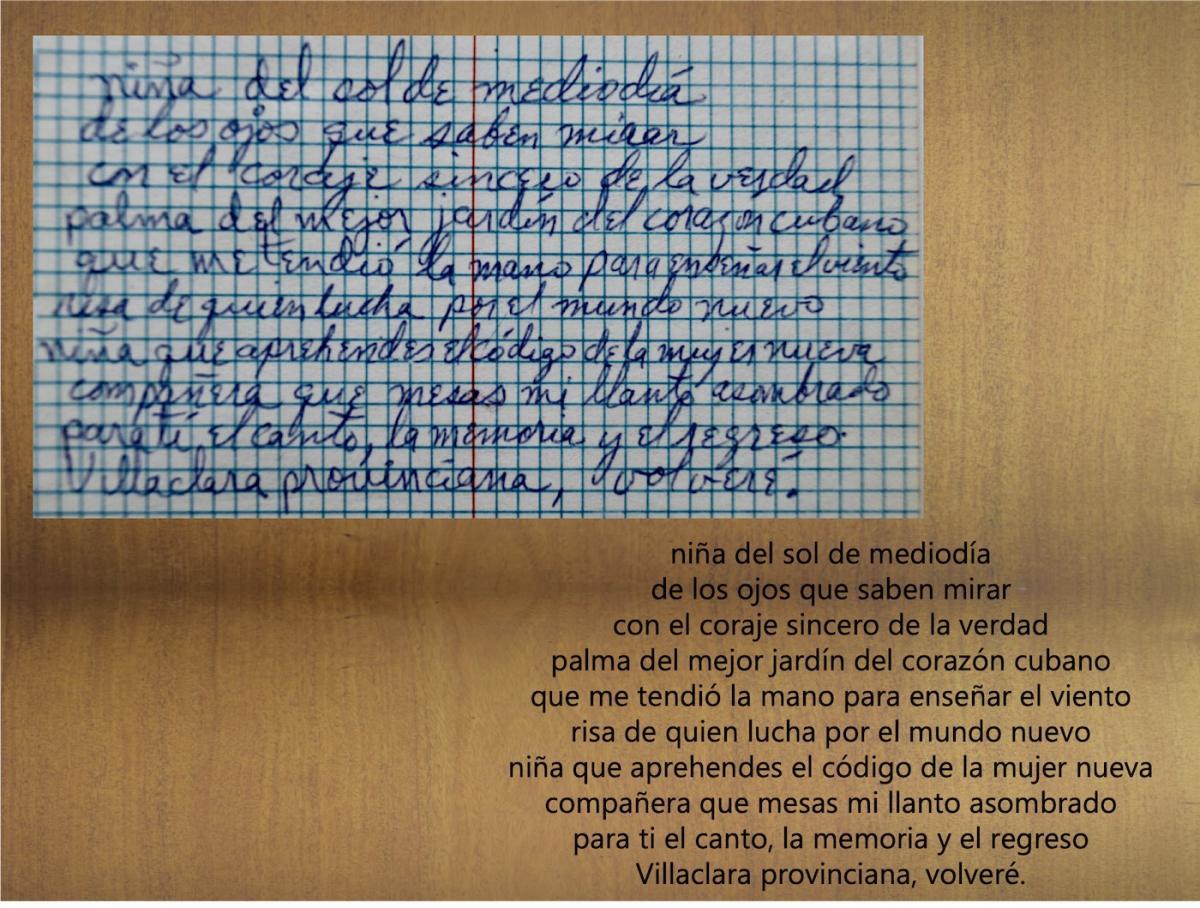 niña del sol de mediodiá
de los ojos que saben mirar
con el coraje sincero de la verdad
palma del mejor jardín del corazon cubano
que me tendió la mano para enseñar el viento
risa de quien lucha por el mundo nuevo
niña que aprehendes el código de la mujer nueva
compañera que mesas mi llanto asombrado
para ti, el canto, la memoria y el regreso.
Villaclara provinciana, volveré.
niña del sol de mediodía
de los ojos que saben mirar
con el coraje sincero de la verdad
palma del mejor jardín del corazón cubano
que me tendió la mano para enseñar el viento
risa de quien lucha por el mundo nuevo
niña que aprehendes el código de la mujer nueva
compañera que mesas mi llanto asombrado
para ti el canto, la memoria y el regreso
Villaclara provinciana, volveré.